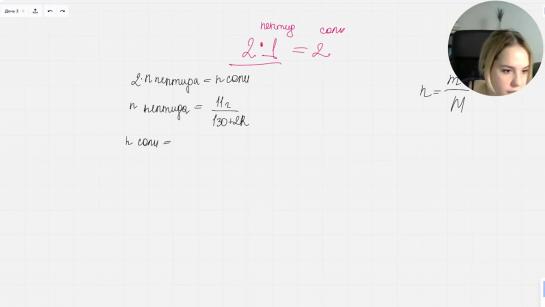 День 3
пептид соли
2 · 1 = 2
2·n пептида = n соли
n пептида = 11г / 130+2R
n соли =
n = m / M